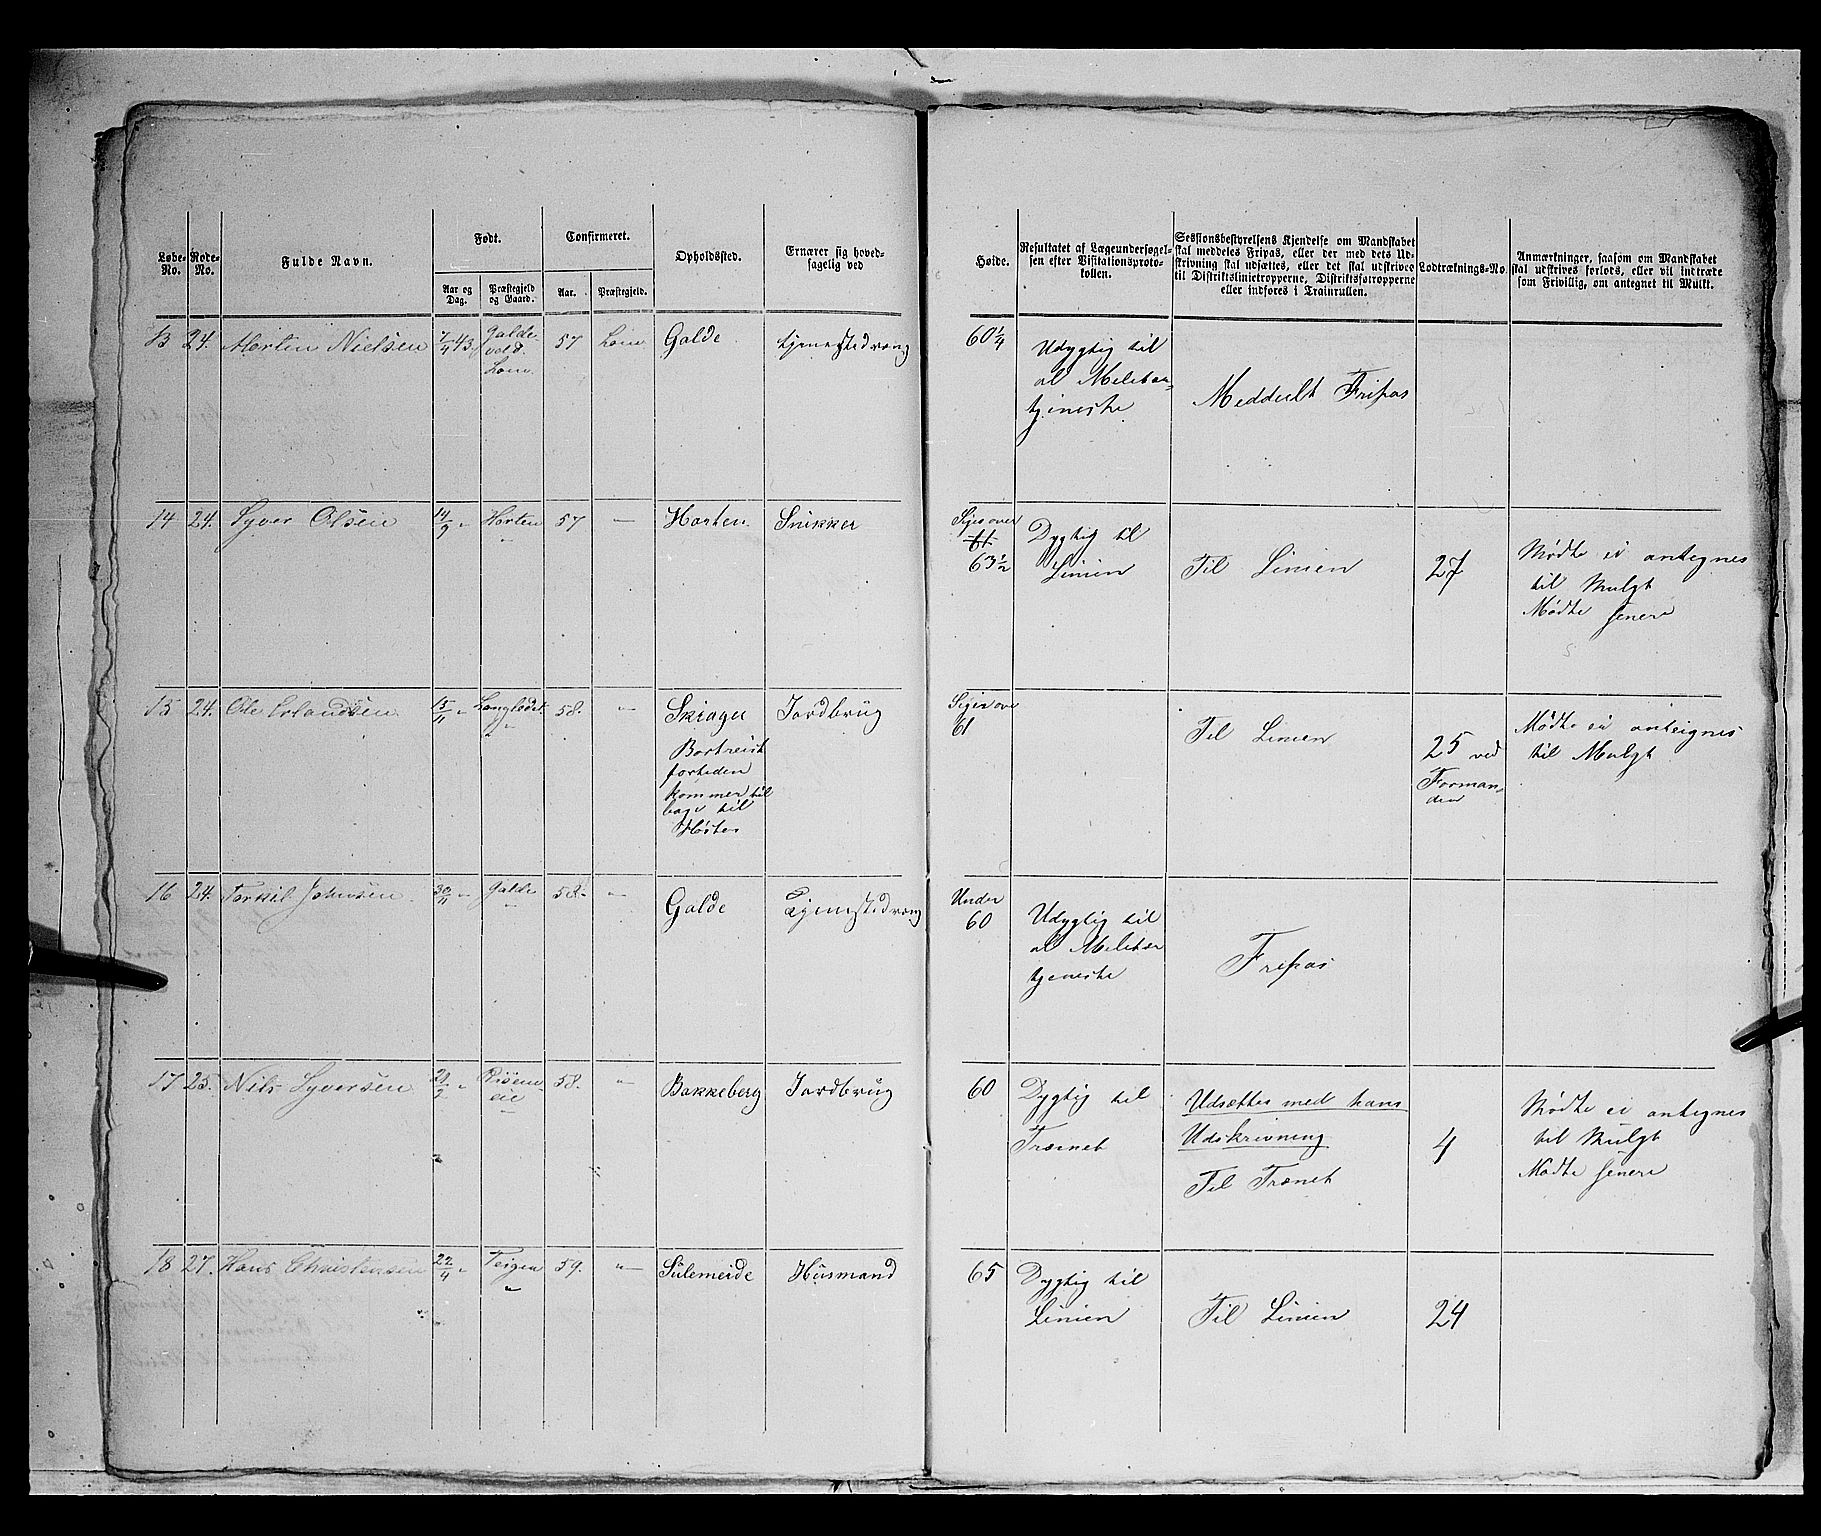 Løbe-No.
Rode-No.
Fulde Navn.
Født.
Aar og Dag.
Præstegjeld og Gaard.
Confirmeret.
Aar.
Præstegjeld.
Opholdssted.
Ernærer sig hoved-
sagelig ved
Høide.
Resultatet af Lægeundersøgel-
sen efter Visitationsproto-
kollen.
Sessionsbestyrelsens Kjendelse om Mandskabet
skal meddeles Fripas, eller der med dets Ud-
skrivning skal udsættes, eller det skal udskrives
til Distriktslinietropperne, Distriktsforropperne
eller indføres i Trainrullen.
Lodtræknings-No.
Anmærkninger, saasom om Mandskabet
skal udskrives forlods, eller vil indtræde
som Frivillig, om antegnet til Mulkt.
13 24. Morten Nielsen 7/4 43. Galde 57 Lom Galde tjenestedreng 60 1/4
Lom.
Udygtig til
al Militær-
tjeneste
Meddeelt Fripas
14 24. Syver Olsen 14/9 " Horten 57 — Horten Snikker
"
Siges over
61
63 1/2
Dygtig til
Linien
Til Linien
27
Mødte ei antegnes
til Mulgt
Mødte senere
15 24. Ole Erlandsen 15/11 " 58. " Skiager Jordbrug
Bortreist
fortiden
kommer til
bage til
Høsten
Siges over
61
Til Linien
25 ved
Forman-
den
Mødte ei anteignes
til Mulgt
16 24. Torkil Johnsen 30/11 " Galde 58. " Galde Tjenestedreng
"
Under
60
Udygtig til
al Militær
tjeneste
Fripas
17 25. Nils Syversen " 58. " Bakkeberg Jordbrug 60
eie
"
Dygtig til
Trænet
Udsættes med hans
Udskrivning
Til Trænet
4
Mødte ei antegnes
til Mulgt
Mødte senere
18 27. Hans Christensen 22/4 " Teigen 59. " Sulemeide Husmand 65
"
Dygtig til
Linien
Til Linien
24